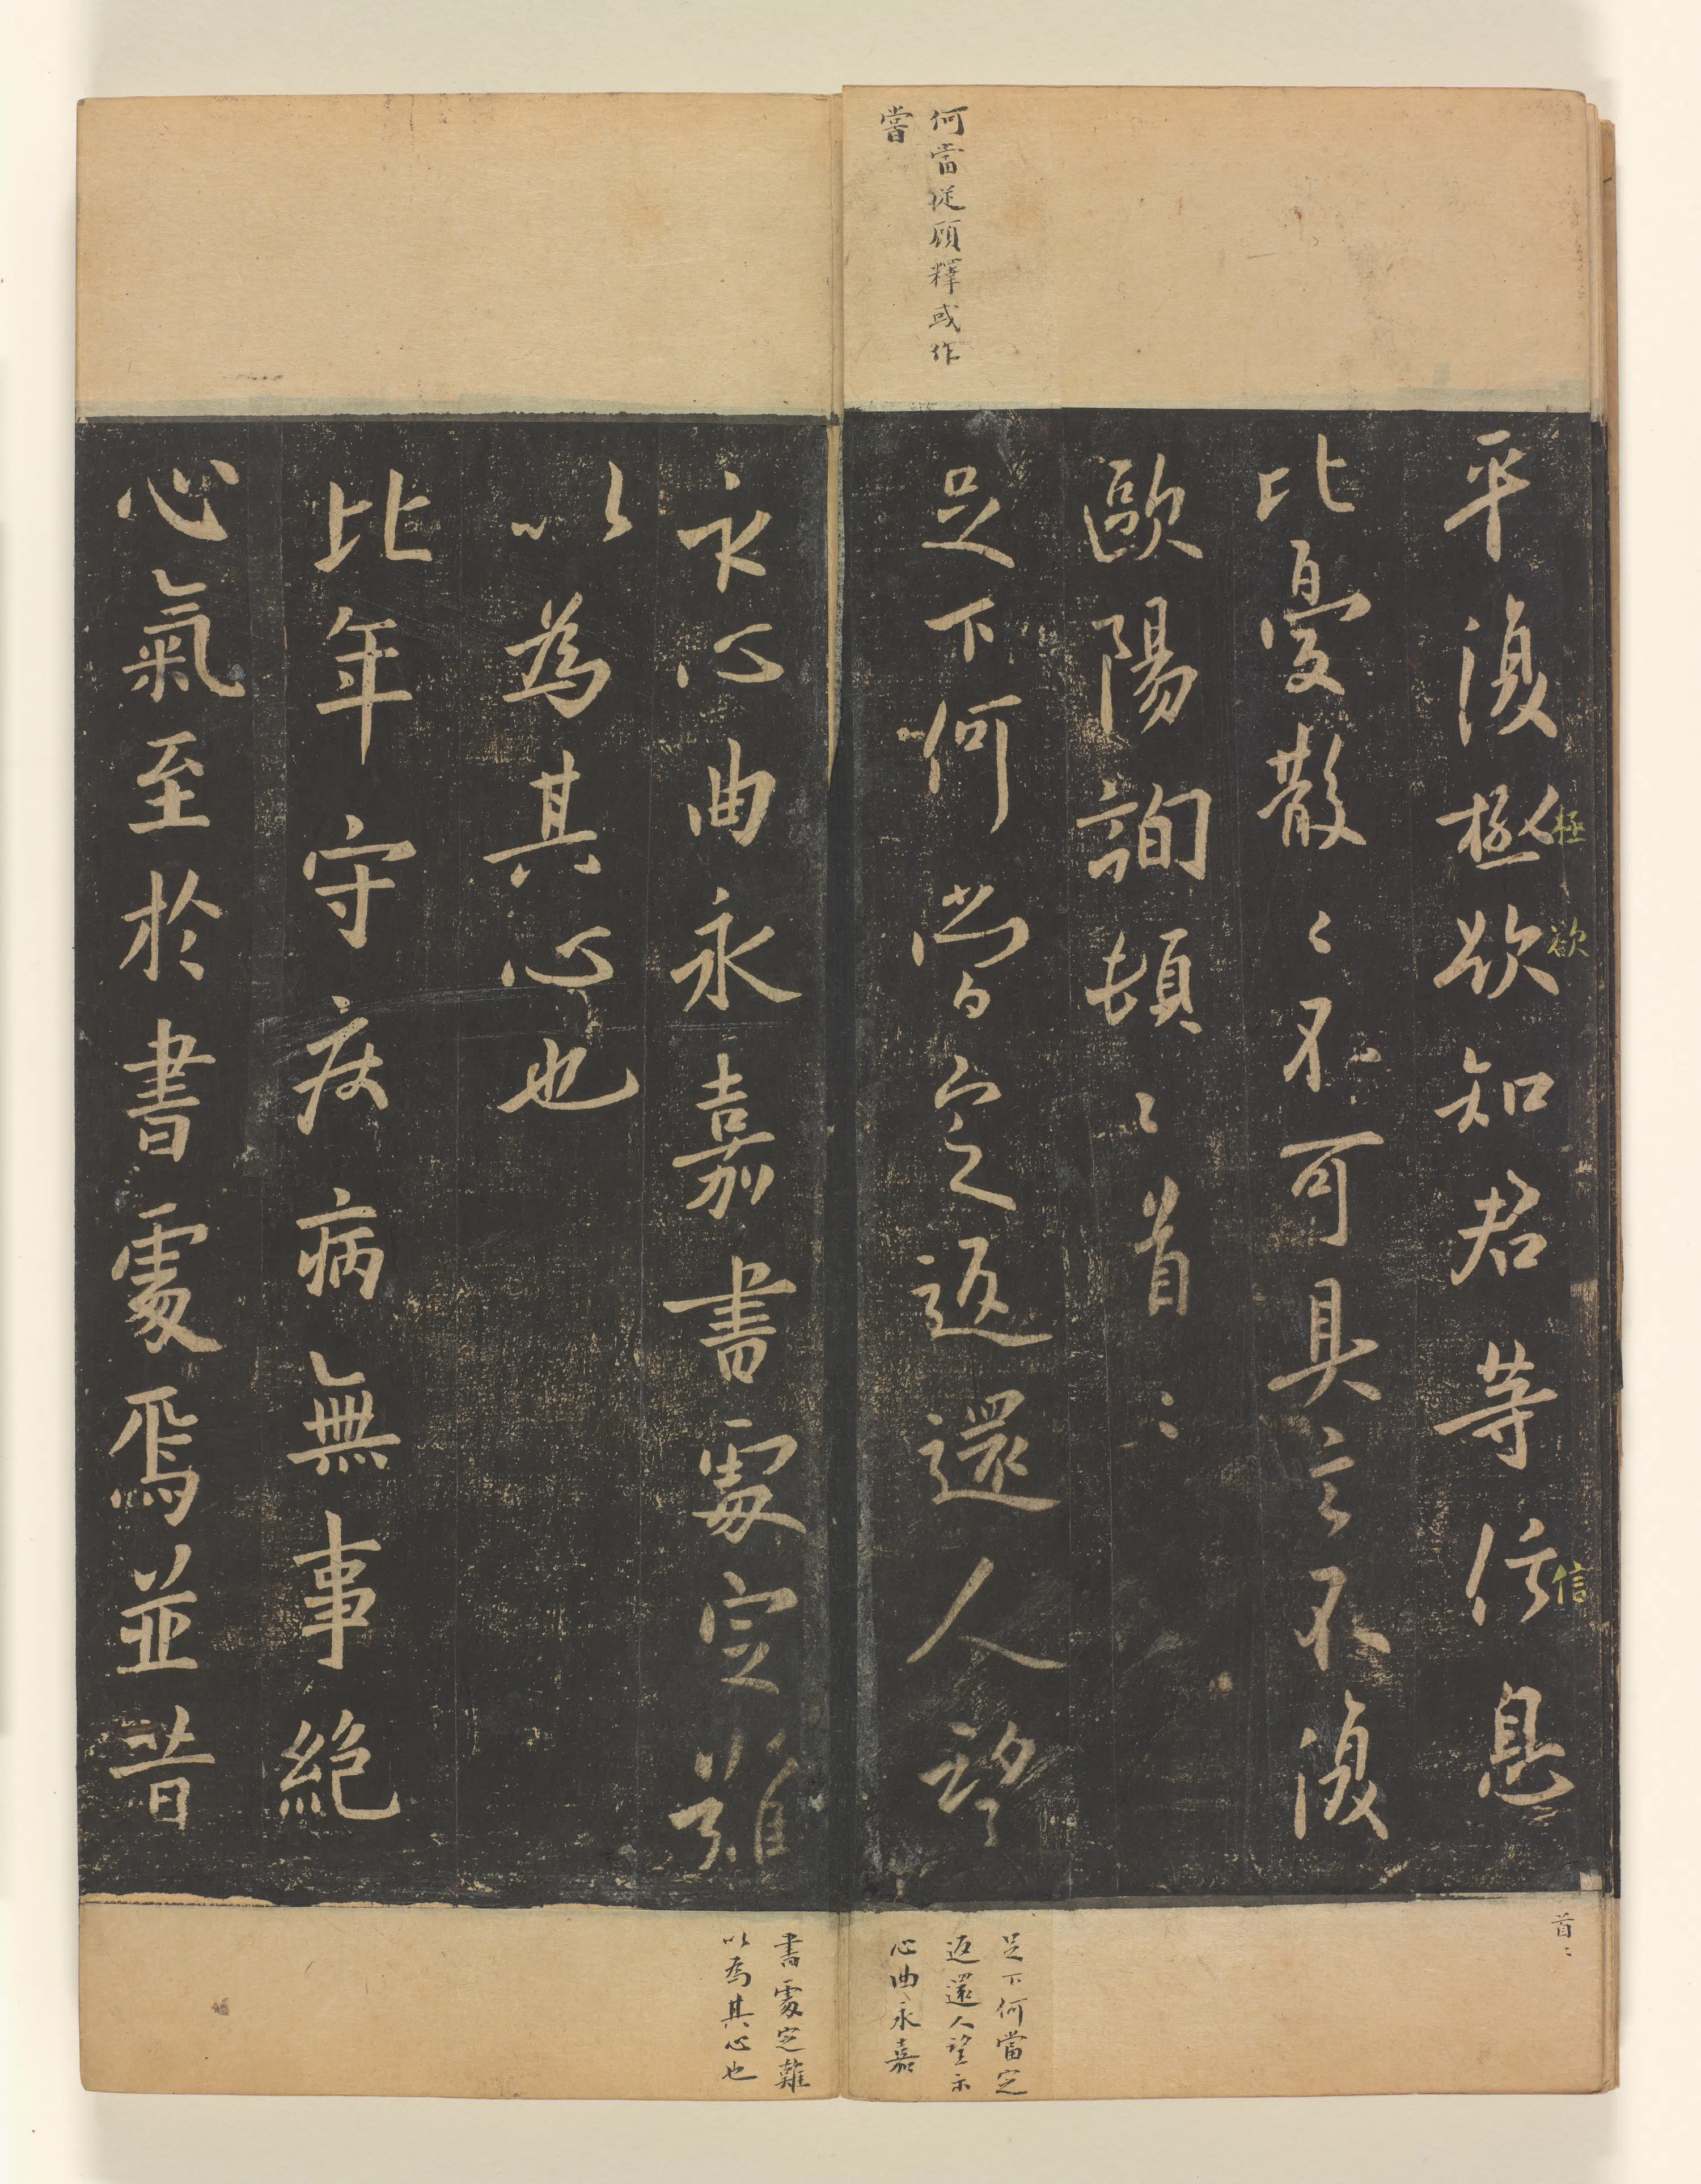 何當從顧釋或作
嘗
平復極欲知君等信息
極
欲
信
比憂散〻不可具言不復
歐陽詢頓〻首〻
足下何當定返還人望
示心曲永嘉書處定難
以為其心也
比年守疾病無事絕
心氣至於書處焉並昔
首〻
足下何當定
返還人望示
心曲永嘉
書處定難
以為其心也